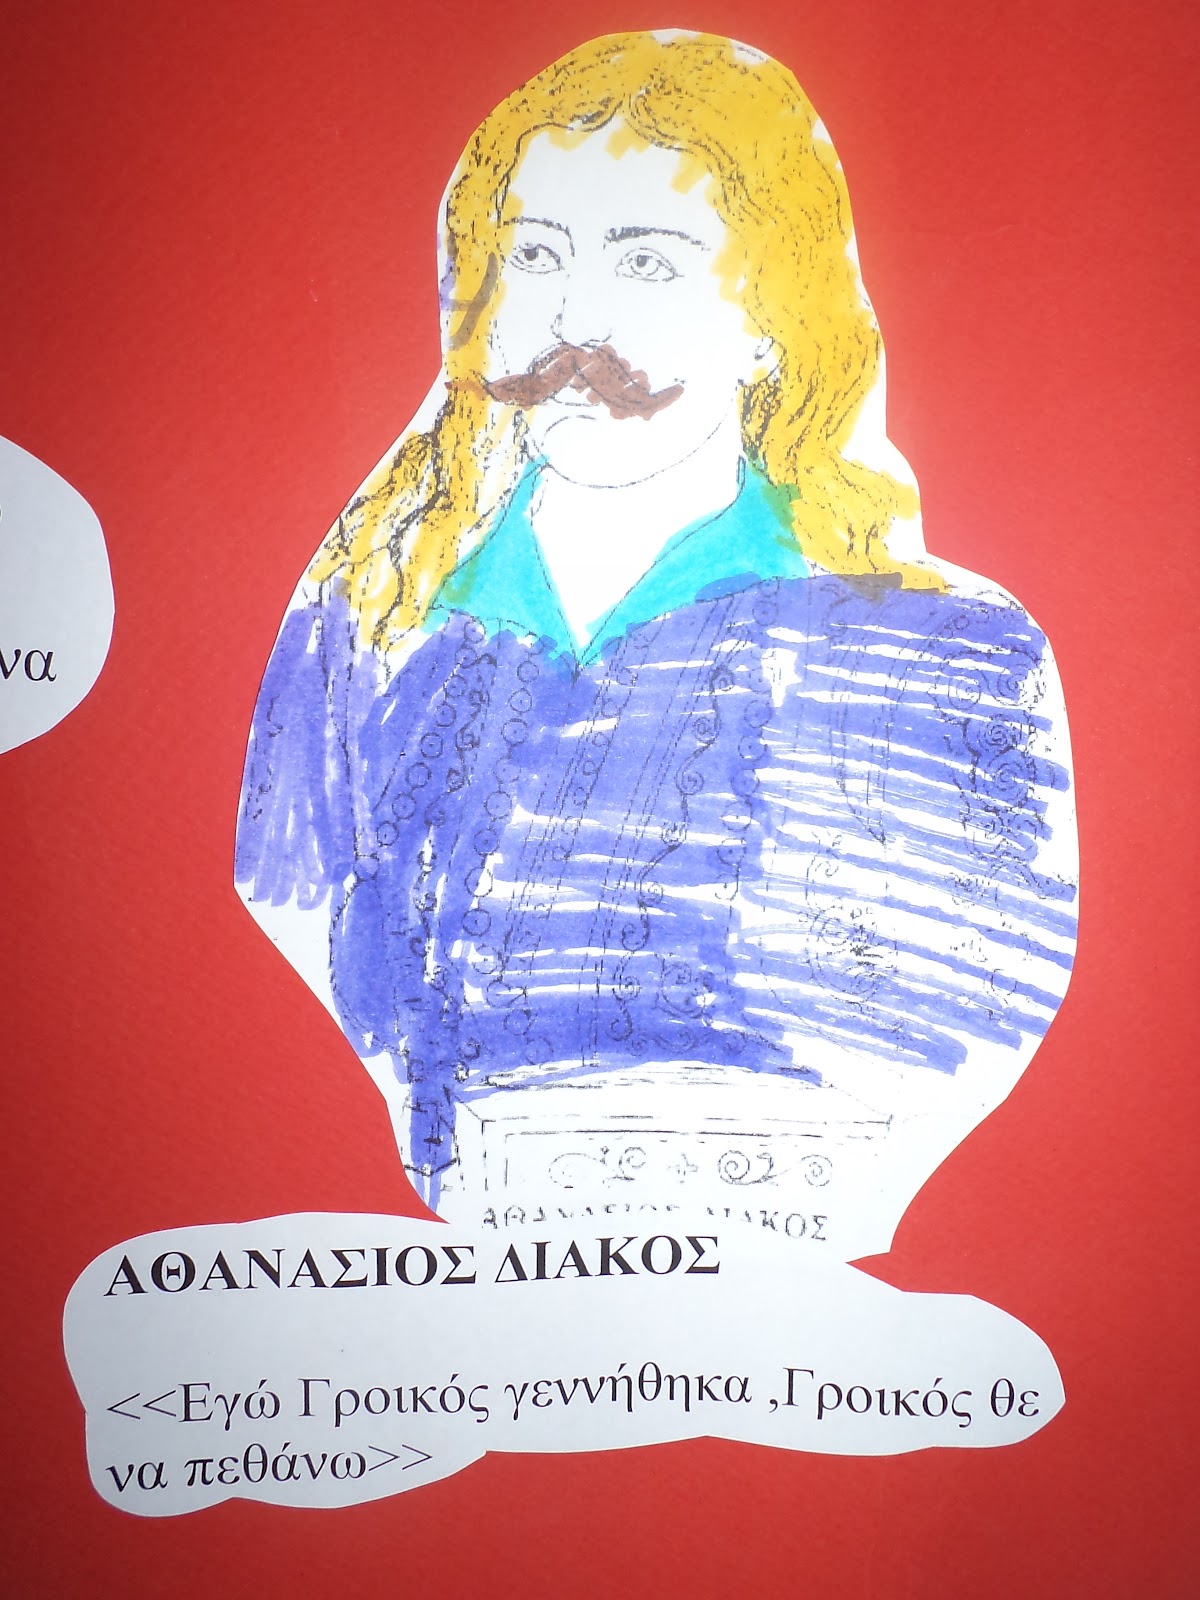 να
ΑΘΑΝΑΣΙΟΣ ΔΙΑΚΟΣ
ΑΘΑΝΑΣΙΟΣ ΔΙΑΚΟΣ
<<Εγώ Γροικός γεννήθηκα ,Γροικός θε
να πεθάνω>>